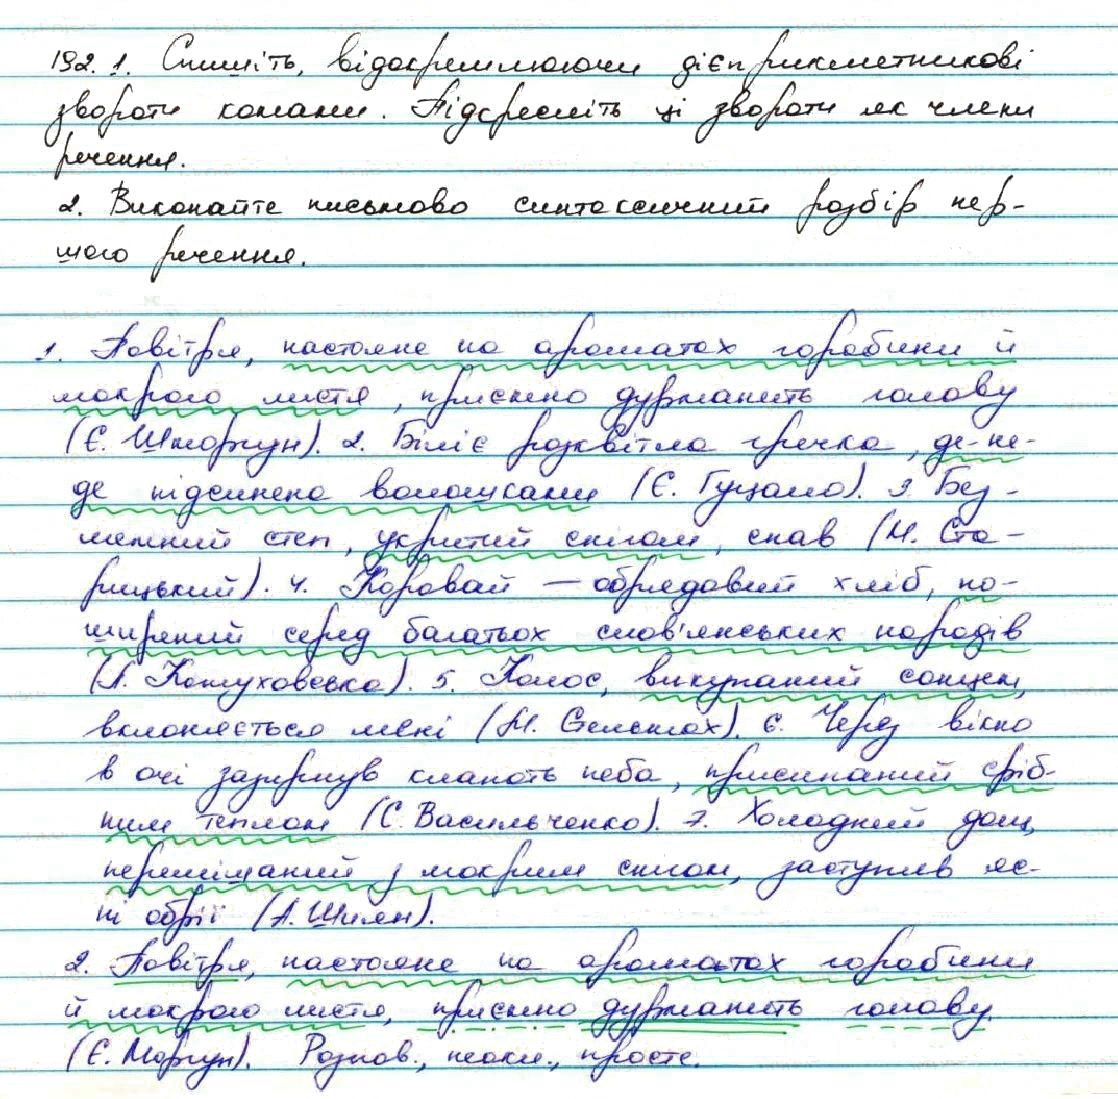 192. 1. Спишіть, відокремлюючи дієприкметникові
звороти комами. Підкресліть ці звороти як члени
речення.
2. Виконайте письмово синтаксичний розбір пер-
шого речення.
1. Повітря, настояне на ароматах горобини й
мокрого листя, приємно дурманить голову
(Є. Шморгун). 2. Біліє розквітла гречка, де-не-
де підсинена волошками (Є. Гуцало). 3. Без-
межний степ, укритий снігом, спав (М. Ста-
рицький). 4. Коровай — обрядовий хліб, по-
ширений серед багатьох слов'янських народів
(Л. Кожуховська). 5. Колос, викупаний сонцем,
вклоняється мені (М. Сельмах). 6. Через вікно
в очі зазирнув клапоть неба, присипаний сріб-
ним теплом (С. Васильченко). 7. Холодний дощ,
перемішаний з мокрим снігом, заступив яс-
ні обрії (А. Шиян).
2. Повітря, настояне на ароматах горобини
й мокрого листя, приємно дурманить голову.
(Є. Моргун). Розпов., неокл., просте.